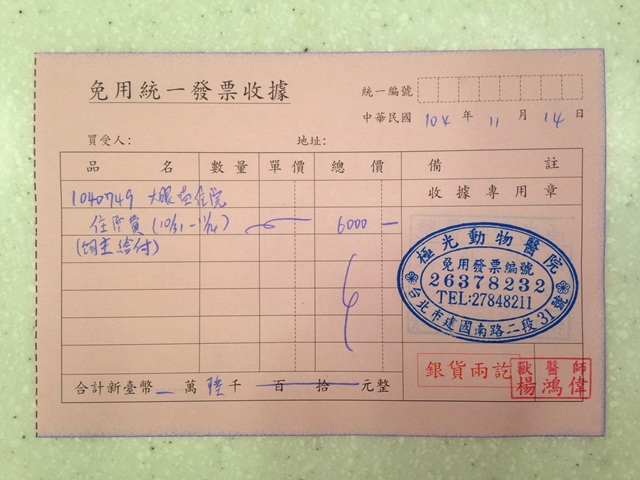 免用統一發票收據
統一編號
中華民國 104 年 11 月 14 日
買受人： 地址：
品名 數量 單價 總價 備註
收據專用章
1040749 大眼 住院
住院費 (10/31-11/14) 6000
(飼主給付)
極光動物醫院
免用發票編號
26378232
TEL:27848211
台北市建國南路二段31號
銀貨兩訖
獸醫師
楊鴻偉
合計新臺幣 萬 陸 千 百 拾 元整